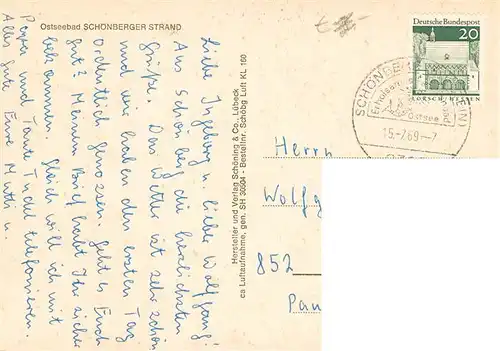 Ostseebad SCHÖNBERGER STRAND
Liebe Ingeborg u. lieber Wolfgang!
Aus Schönberg die herzlichsten
Grüße. Das Wetter ist sehr schön
und wir haben den ersten Tag
ordentlich genossen. Geht es Euch
gut? Meinen Brief habt Ihr sicher
bekommen. Gleich will ich mit
Papa und Tante Trudel telefonieren.
Alles Gute Eure Mutti u.
Hersteller und Verlag Schöning & Co., Lübeck
ca Luftaufnahme, gen. SH 30504 - Bestellnr. Schöbg Luft KL 160
Deutsche Bundespost
20
LORSCH/HESSEN
SCHÖNBE
Ostsee
15.-7.69.-7
Herrn
Wolfg
852